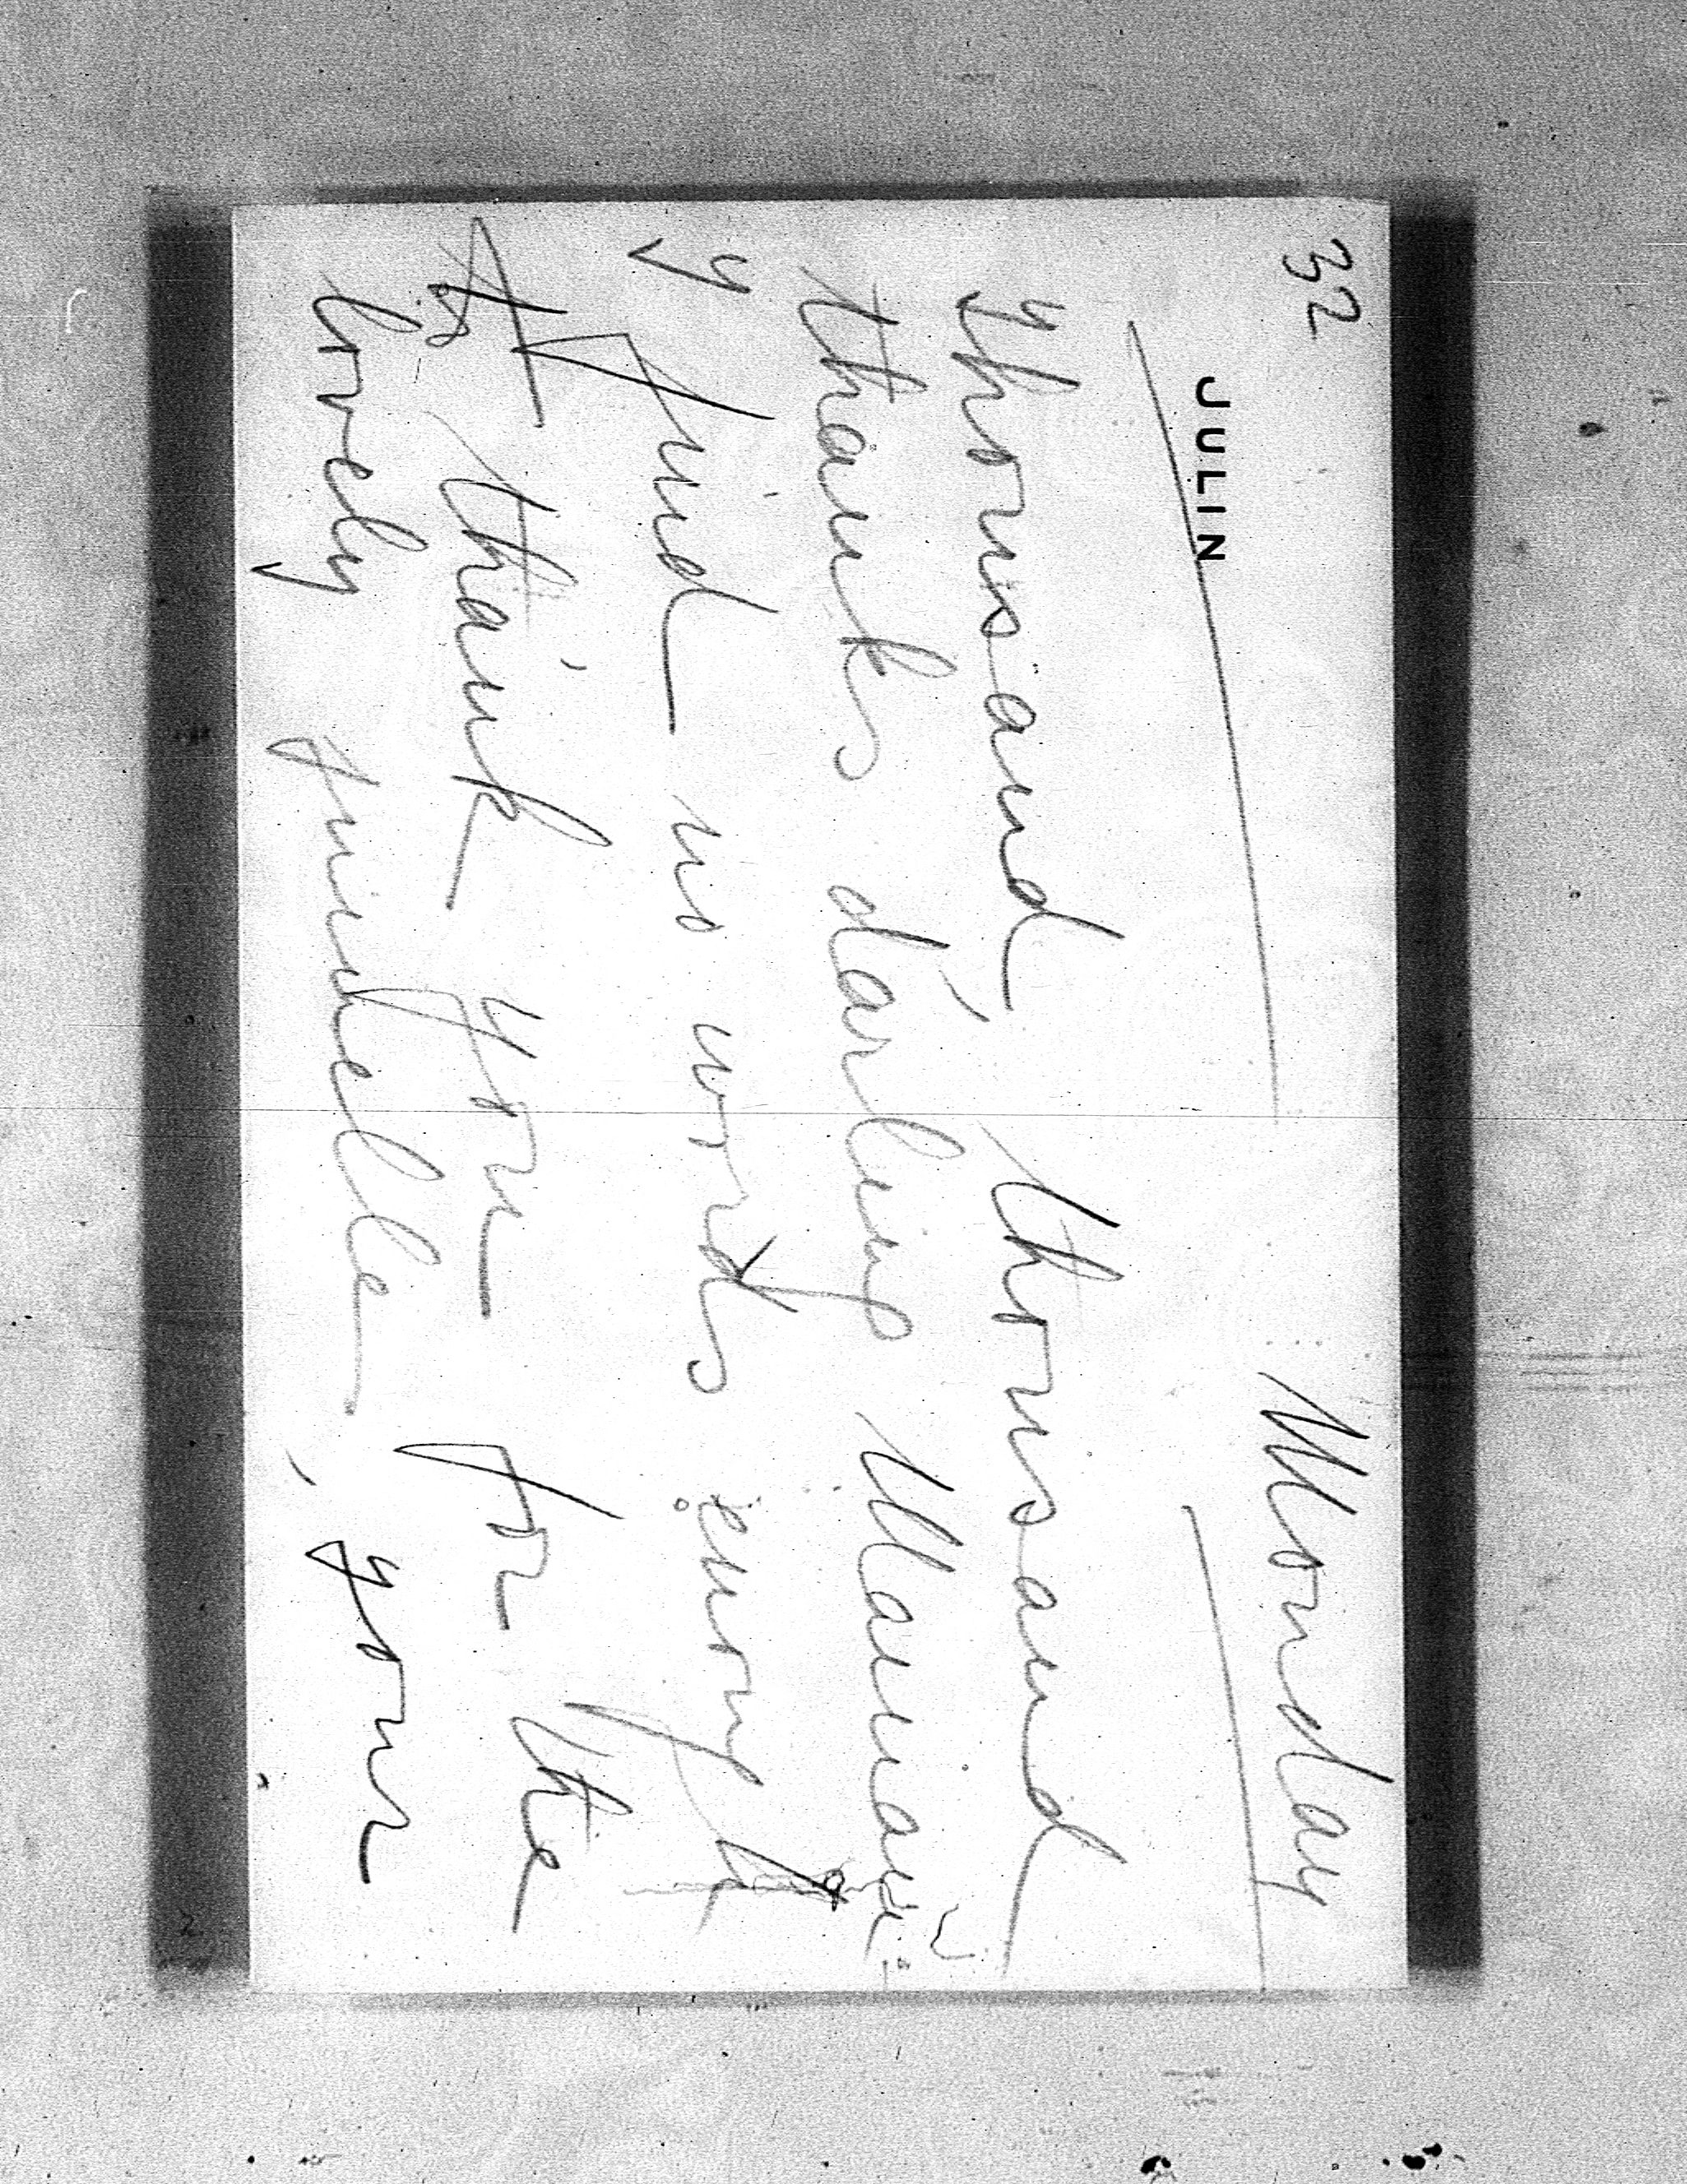 32
JULIN
Monday
Thousand thousand
thanks darling Mamau
y find no words enough
to thank you for the
lovely juifelle, your